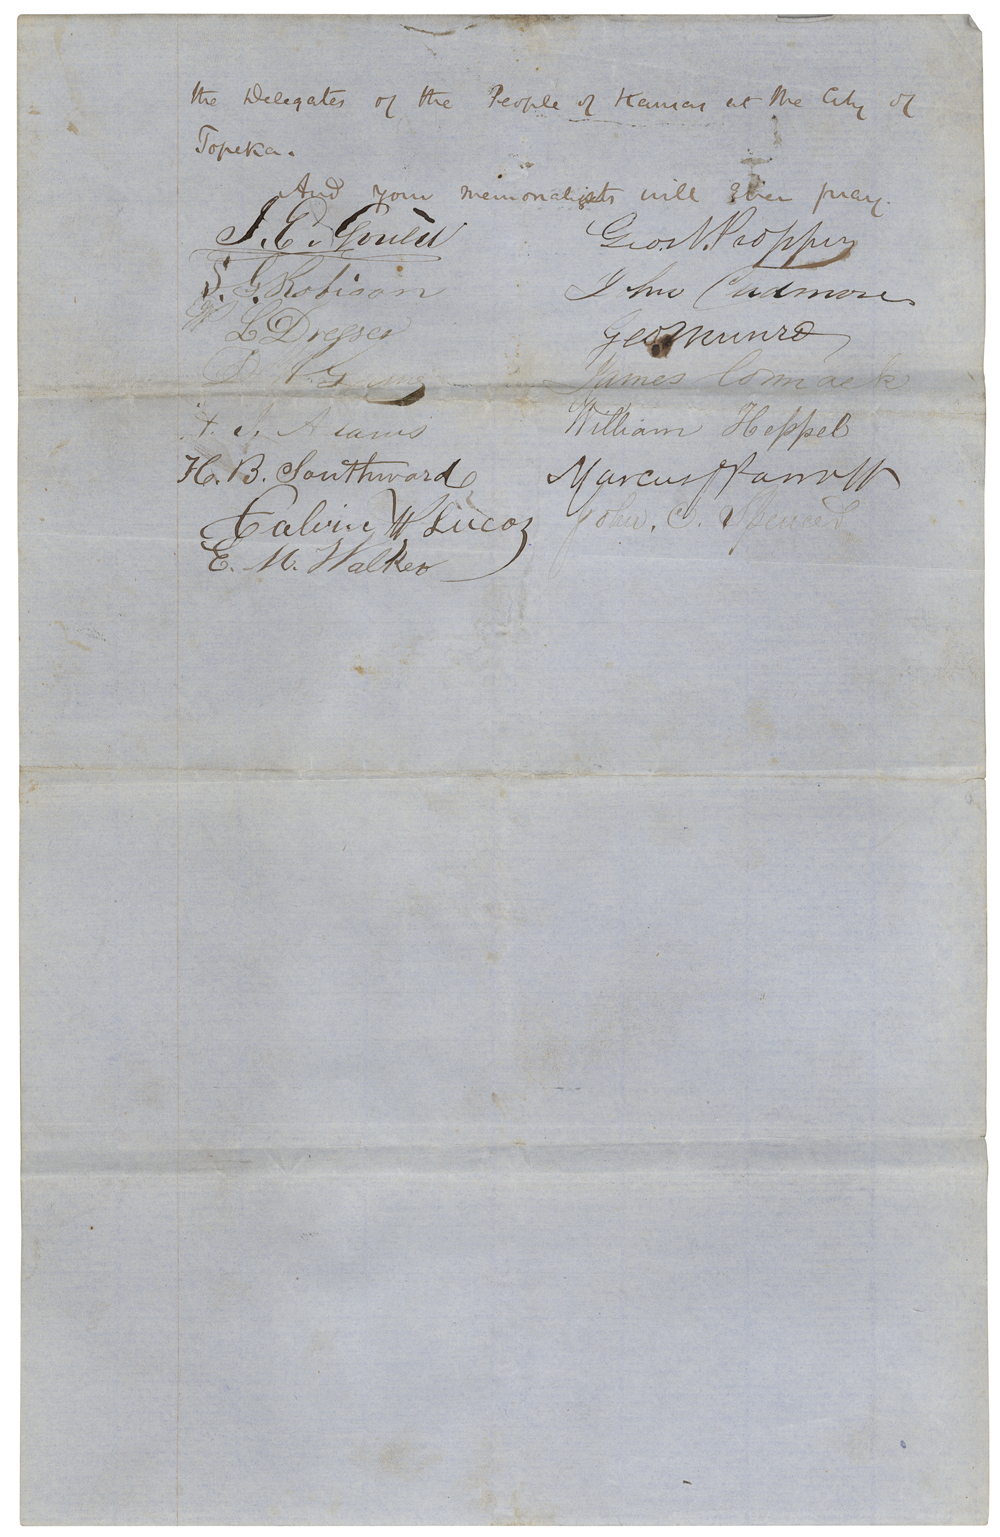 the Delegates of the People of Kansas at the City of
Topeka.
And your memorialists will Ever pray.
J. E. Gould
S. G. Robison
L Dresser
Adams
H. B. Southward
Calvin H Lucas
E. M. Walker
Geo. N. Propper
Jno Cadmore
Geo Munro
James Cormack
William Heppel
Marcus J Parrott
John. C. Spencer